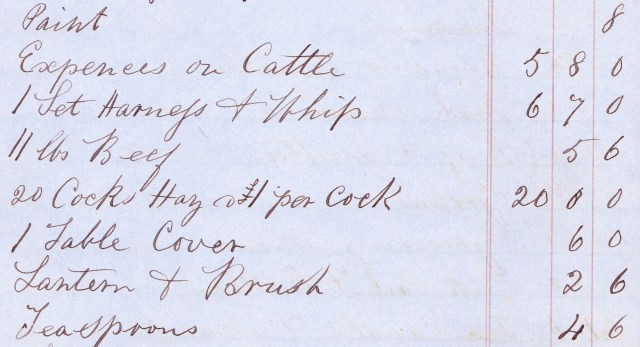 Paint 8
Expences on Cattle 5 8 0
1 Set Harness & Whip 6 7 0
11 lbs Beef 5 6
20 Cocks Hay @ £1 per Cock 20 0 0
1 Table Cover 6 0
Lantern & Brush 2 6
Teaspoons 4 6